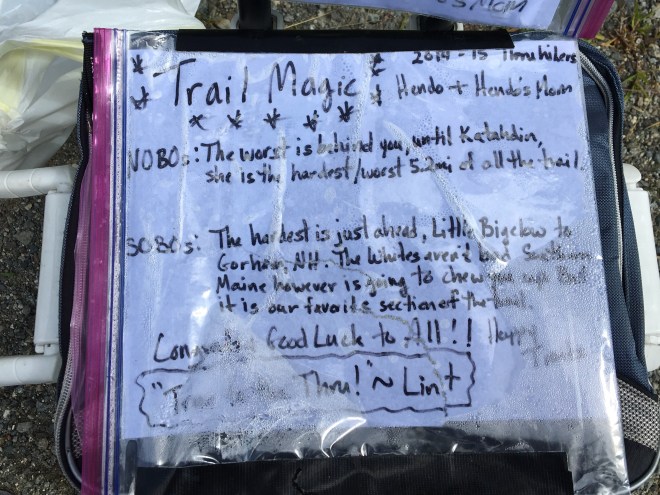 s Mom
* Trail Magic * 2014 - 15 Thruhikers
* * * * * * Hendo + Hendo's Mom
NOBOs: The worst is behind you, until Katahdin,
she is the hardest/worst 5.2mi of all the trail.
SOBOs: The hardest is just ahead, Little Bigelow to
Gorham, NH. The Whites aren't bad Southern
Maine however is going to chew you up. But
it is our favorite section of the trail.
Good Luck to All!! Happy
Trails
Thru!" ~ Lint